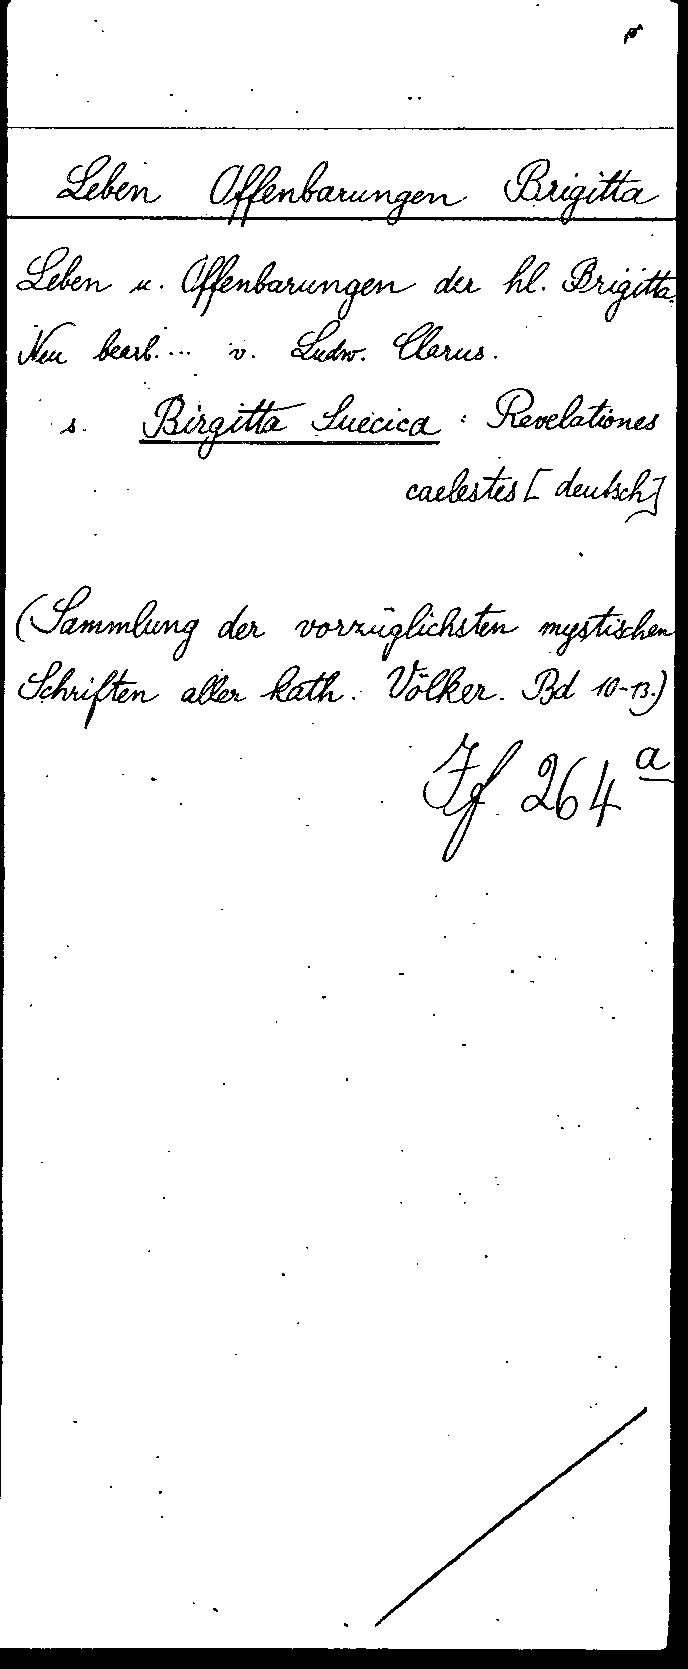 Leben Offenbarungen Brigitta
Leben u. Offenbarungen der hl. Brigitta.
Neu bearb.... v. Ludw. Clarus.
s. Birgitta Suecica : Revelationes
caelestes [deutsch]
(Sammlung der vorzüglichsten mystischen
Schriften aller kath. Völker. Bd 10-13.)
If 264 a